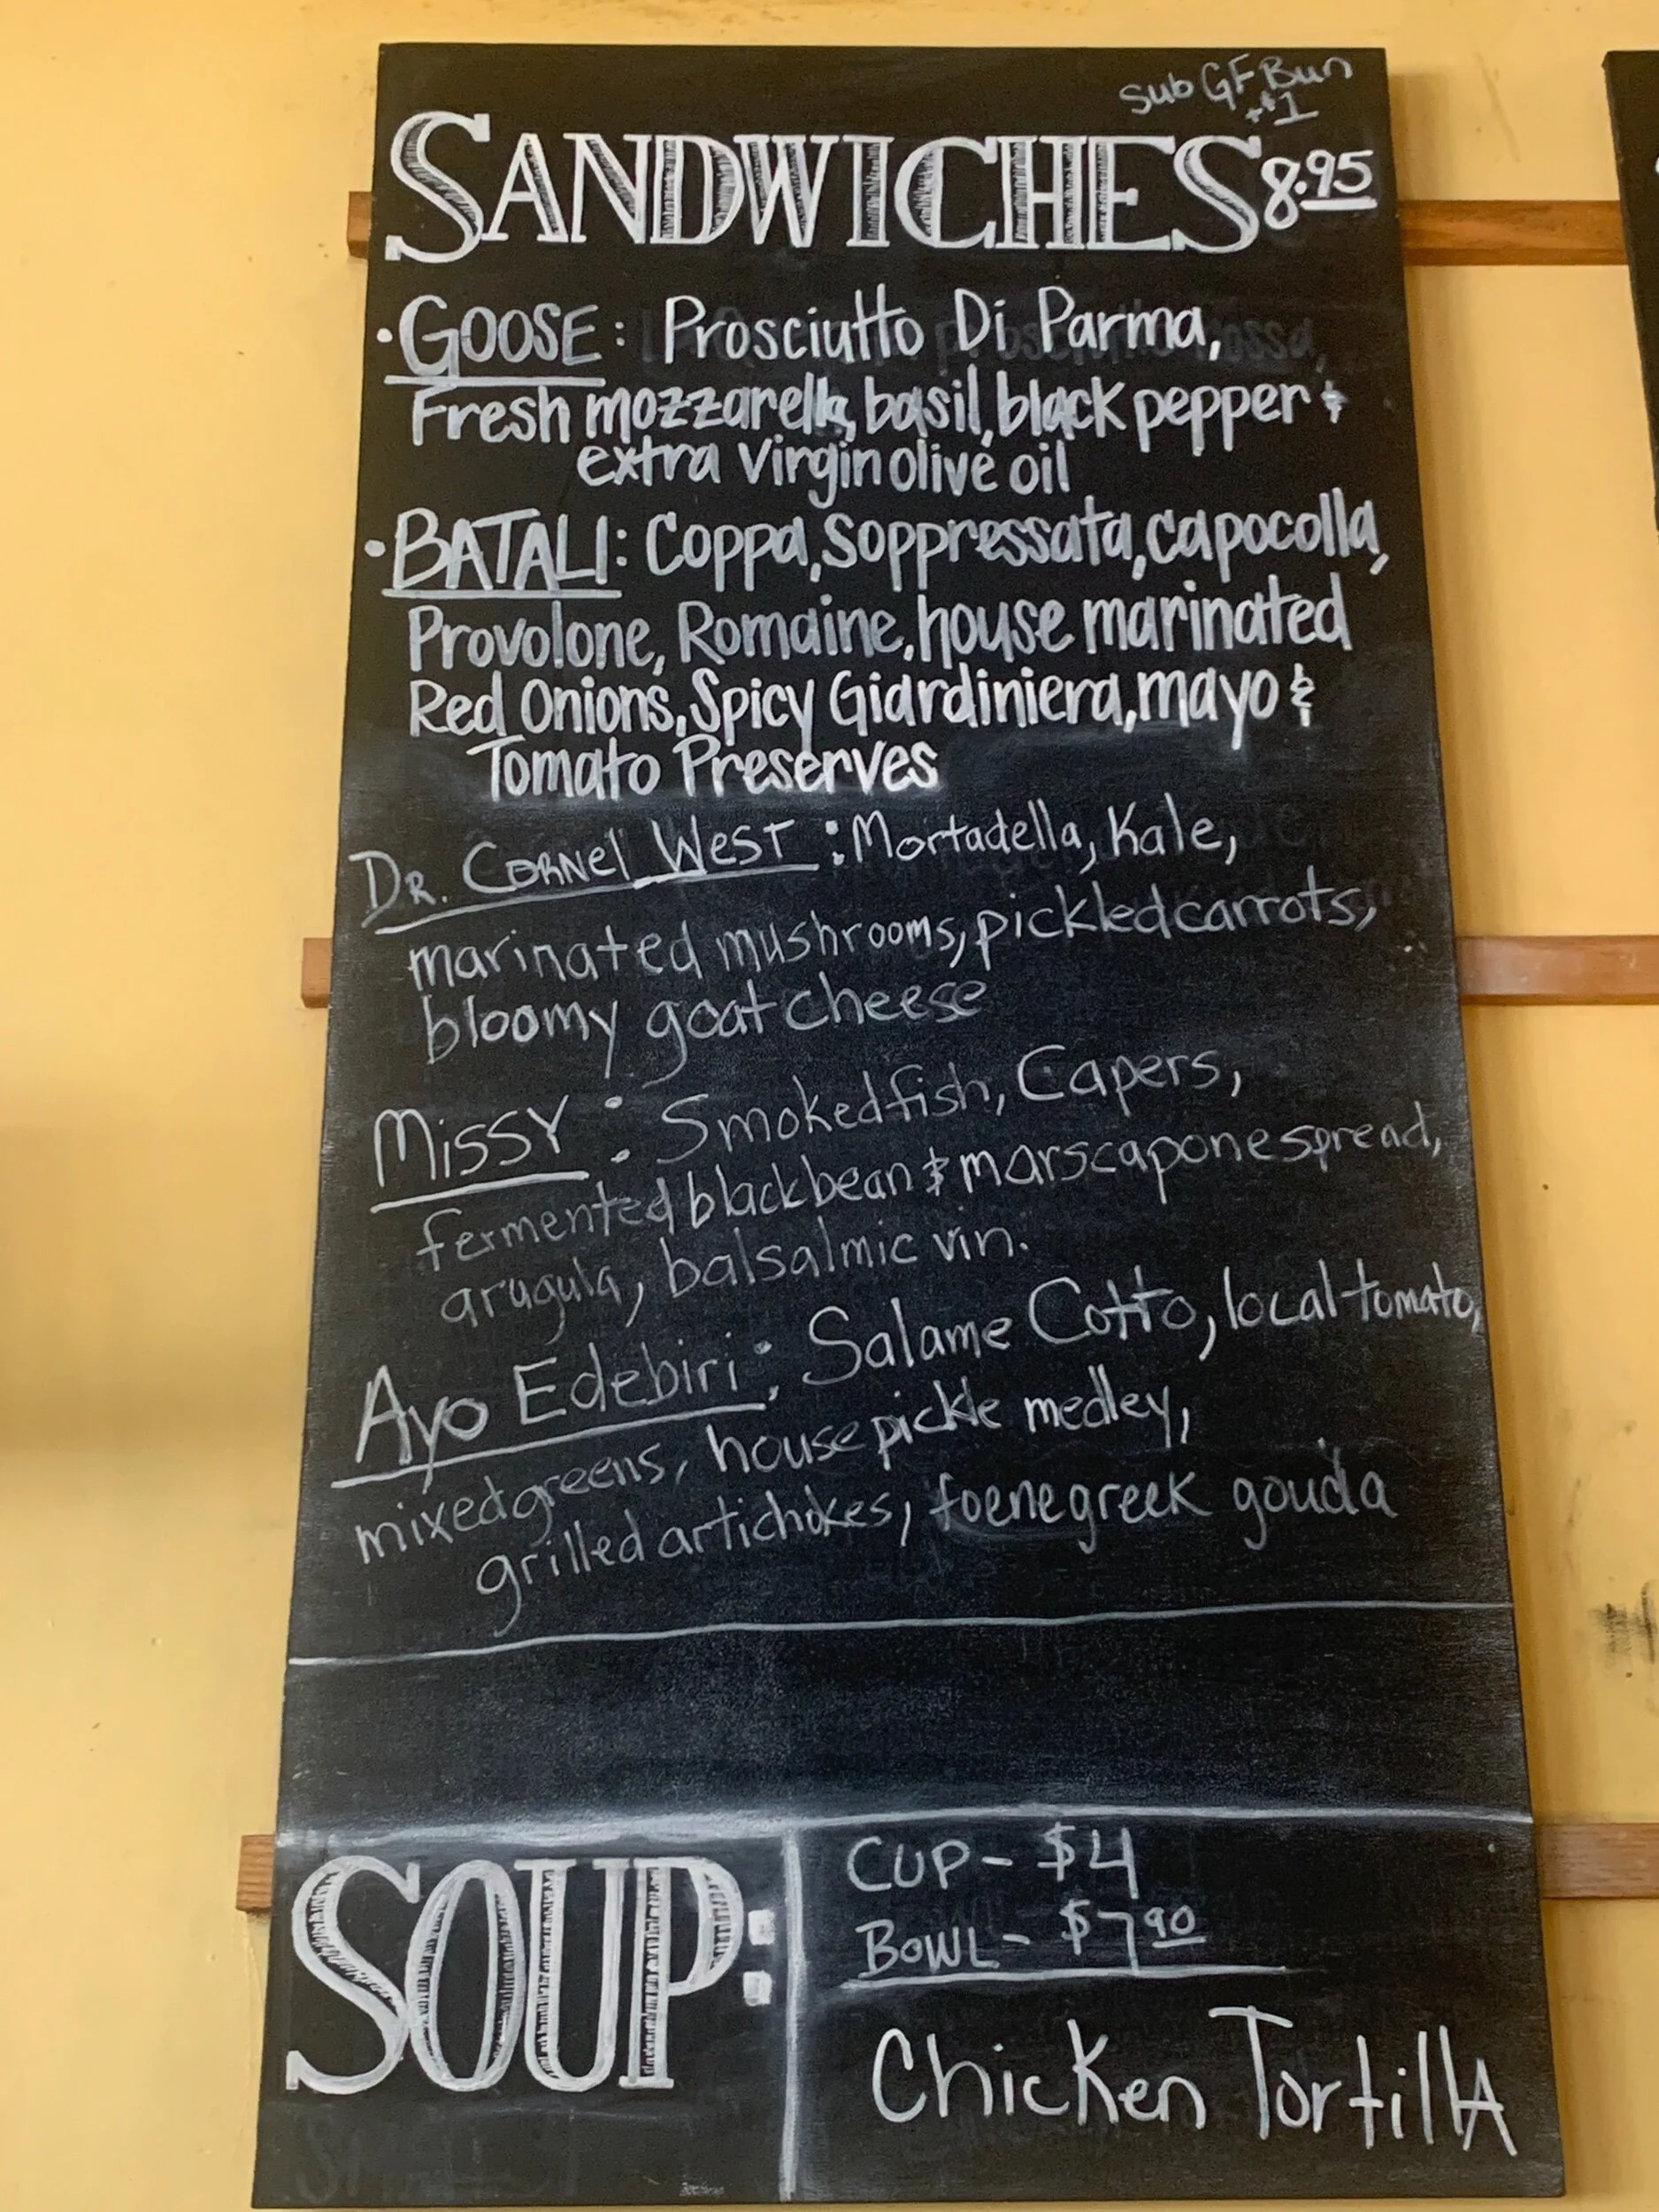 Sub GF Bun
+$1
SANDWICHES 8.95
• GOOSE: Prosciutto Di Parma,
Fresh mozzarella, basil, black pepper &
extra virgin olive oil
• BATALI: Coppa, Soppressata, capocolla,
Provolone, Romaine, house marinated
Red Onions, Spicy Giardiniera, mayo &
Tomato Preserves
DR. CORNEL WEST: Mortadella, Kale,
marinated mushrooms, pickled carrots,
bloomy goat cheese
MISSY: Smoked fish, Capers,
fermented black bean & marscapone spread,
arugula, balsalmic vin.
Ayo Edebiri: Salame Cotto, local tomato,
mixed greens, house pickle medley,
grilled artichokes, foenegreek gouda
SOUP:
CUP - $4
BOWL - $7.90
Chicken Tortilla